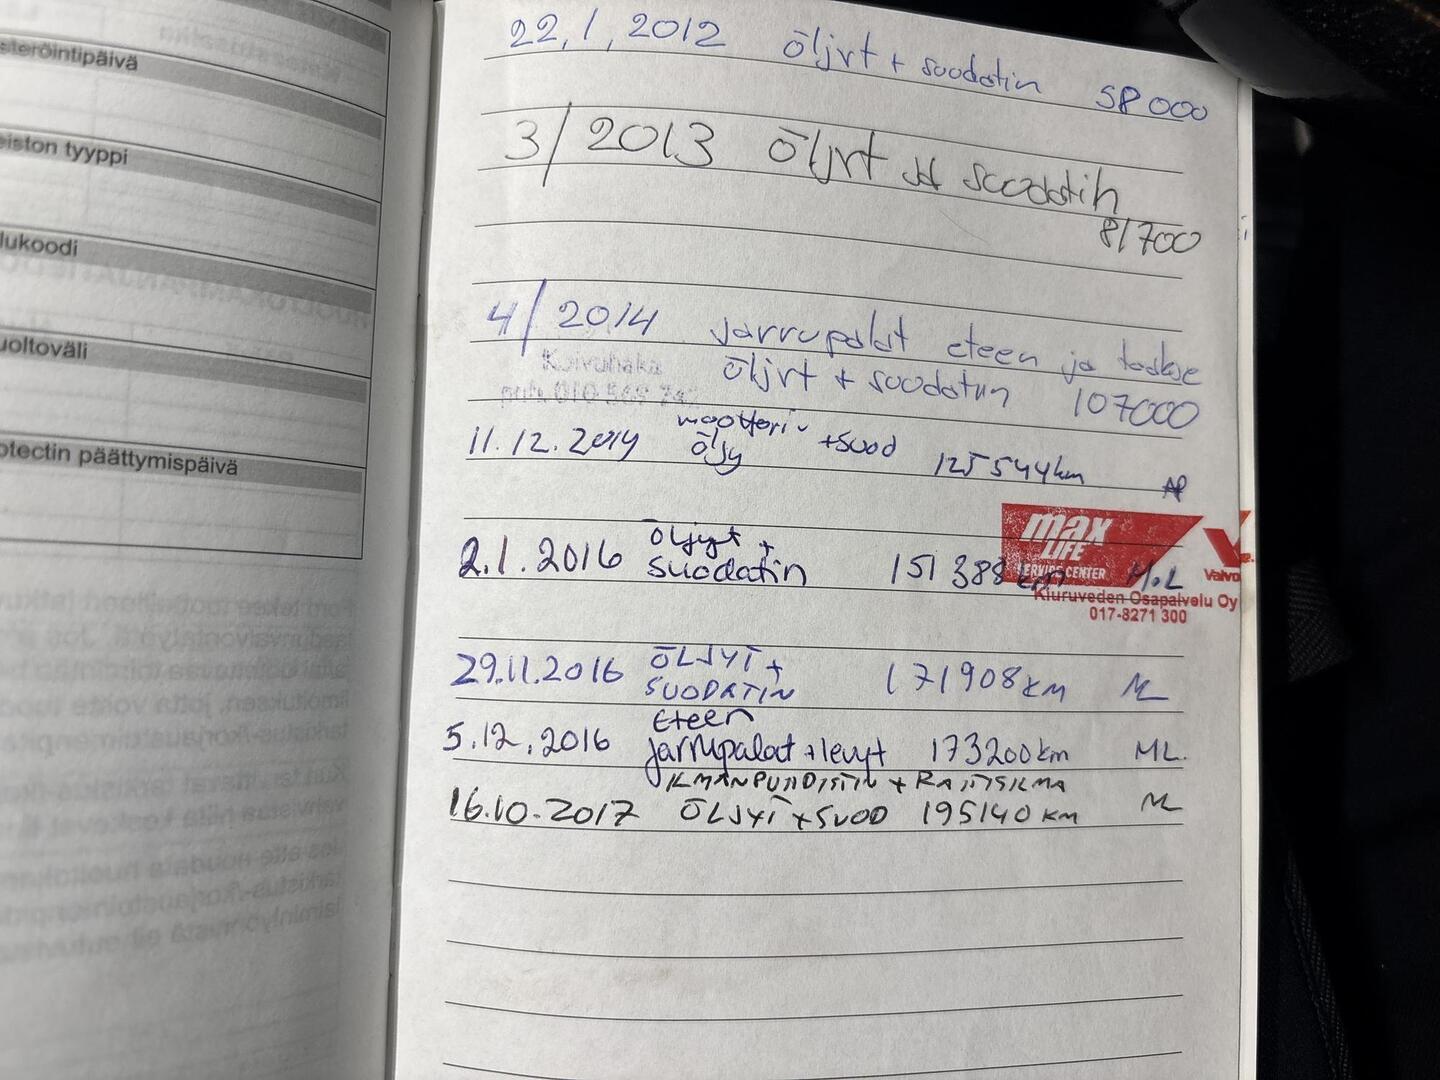 steröintipäivä
eiston tyyppi
lukoodi
uoltoväli
otectin päättymispäivä
22.1.2012 öljyt + suodatin 58 000
3/2013 öljyt ja suodatin
81700
4/2014 jarrupalat eteen ja taakse
Koivuhaka
öljyt + suodatin 107000
puh. 010 569
moottori-
11.12.2014 öljy +suod 125 544km AP
max
LIFE
SERVICE CENTER
Valvo
öljyt +
2.1.2016 suodatin 151 388 km M.L
Kiuruveden Osapalvelu Oy
017-8271 300
29.11.2016 ÖLJYT +
SUODATIN 171908 KM ML
Eteen
5.12.2016 jarrupalat + levyt 173200km ML.
ILMANPUHDISTIN + RAITISILMA
16.10.2017 ÖLJYT + SUOD 195140 KM ML